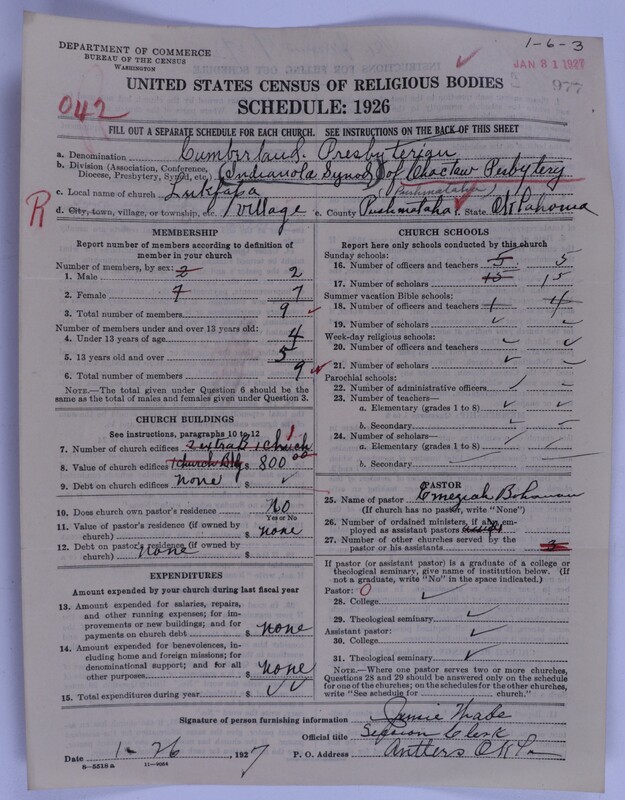 1-6-3
DEPARTMENT OF COMMERCE
BUREAU OF THE CENSUS
WASHINGTON
JAN 31 1927
977
UNITED STATES CENSUS OF RELIGIOUS BODIES
SCHEDULE: 1926
042
FILL OUT A SEPARATE SCHEDULE FOR EACH CHURCH. SEE INSTRUCTIONS ON THE BACK OF THIS SHEET
a. Denomination Cumberland Presbyterian
b. Division (Association, Conference, Diocese, Presbytery, Synod, etc.) (Indianola Synod) of Choctaw Presbytery
c. Local name of church Lukfapa (Pushmataha)
R d. City, town, village, or township, etc. village e. County Pushmataha f. State Oklahoma
MEMBERSHIP
Report number of members according to definition of member in your church
Number of members, by sex:
1. Male 2 2
2. Female 7 7
3. Total number of members 9
Number of members under and over 13 years old:
4. Under 13 years of age 4
5. 13 years old and over 5
6. Total number of members 9
NOTE.—The total given under Question 6 should be the same as the total of males and females given under Question 3.
CHURCH BUILDINGS
See instructions, paragraphs 10 to 12
7. Number of church edifices 1 church
8. Value of church edifices 1 church Bldg $ 800 00
9. Debt on church edifices none $
10. Does church own pastor's residence No
Yes or No
11. Value of pastor's residence (if owned by church) $ none
12. Debt on pastor's residence (if owned by church) none $
EXPENDITURES
Amount expended by your church during last fiscal year
13. Amount expended for salaries, repairs, and other running expenses; for improvements or new buildings; and for payments on church debt $ none
14. Amount expended for benevolences, including home and foreign missions; for denominational support; and for all other purposes $ none
15. Total expenditures during year $
CHURCH SCHOOLS
Report here only schools conducted by this church
Sunday schools:
16. Number of officers and teachers 5 5
17. Number of scholars 15 15
Summer vacation Bible schools:
18. Number of officers and teachers 1 4
19. Number of scholars
Week-day religious schools:
20. Number of officers and teachers
21. Number of scholars
Parochial schools:
22. Number of administrative officers
23. Number of teachers—
a. Elementary (grades 1 to 8)
b. Secondary
24. Number of scholars—
a. Elementary (grades 1 to 8)
b. Secondary
PASTOR
25. Name of pastor Emeziah Bohanan
(If church has no pastor, write "None")
26. Number of ordained ministers, if any employed as assistant pastors
27. Number of other churches served by the pastor or his assistants 3
If pastor (or assistant pastor) is a graduate of a college or theological seminary, give name of institution below. (If not a graduate, write "No" in the space indicated.)
Pastor: 0
28. College
29. Theological seminary
Assistant pastor:
30. College
31. Theological seminary
NOTE.—Where one pastor serves two or more churches, Questions 28 and 29 should be answered only on the schedule for one of the churches; on the schedules for the other churches, write "See schedule for ............ church."
Signature of person furnishing information
Official title Session Clerk
Date 1-26 1927 P. O. Address Antlers Okla
8—5518 a 11—9024